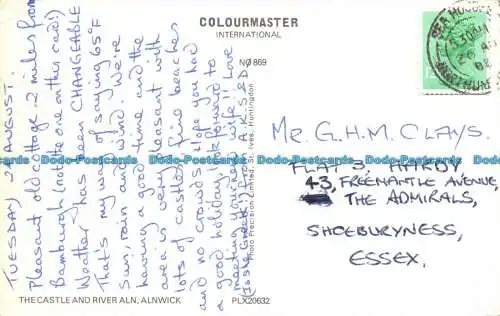 COLOURMASTER
INTERNATIONAL
NO 869
TUESDAY 2 AUGUST.
Pleasant old cottage - 2 miles from
Bamburgh (not the one on this card!)
Weather has been CHANGEABLE
That's my way of saying 65°F
Sun, rain and wind. We're
having a good time and the
area is very pleasant with
lots of castles, fine beaches
and no crowds. Hope you had
a good holiday. Look forward to
meeting your new wife!! Love
from A, K, S & D
Photo Precision Limited, St. Ives, Huntingdon
Mr. G.H.M. CLAYS.
FLAT 3, HARDY
43, FREEMANTLE AVENUE
THE ADMIRALS,
SHOEBURYNESS,
ESSEX.
THE CASTLE AND RIVER ALN, ALNWICK
PLX20632
Dodo-Postcards Dodo-Postcards Dodo-Postcards Dodo-Postcards